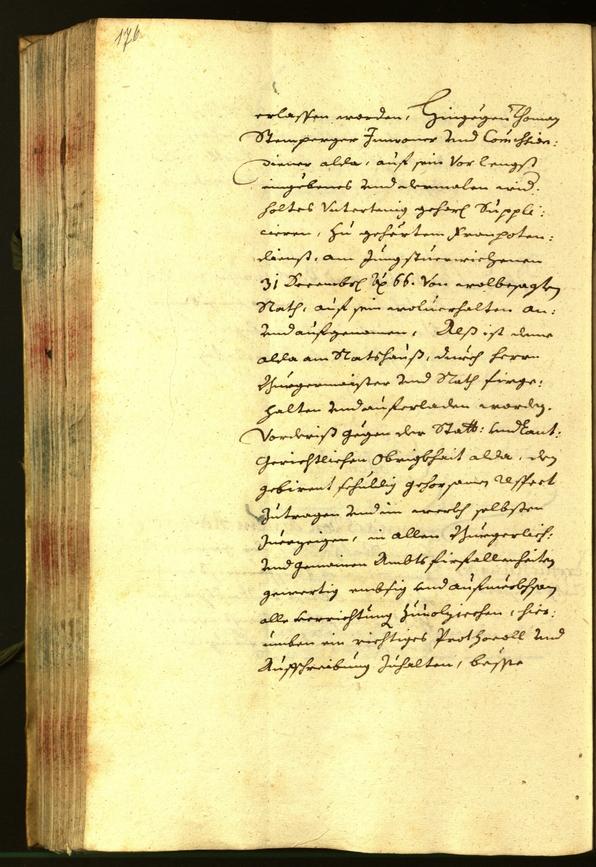 176
erlassen worden, Hingegen Thoman
Stemperger Inwoner und
diener alda, auf sein Vorlengst
eingebenes und dermalen wid:
holtes Untertenig gehors: Suppli:
cieren, zu gehertem Franpoten:
dienst, am Jungstuerwichenen
31 Decembris 66. Von wolbesagten
Rath, auf sein woluerhalten an:
und aufgenomen, Alß ist deme
alda am Ratshauß, durch herrn
Burgermaister und Rath firge:
halten und auferladen worden.
Vorderist gegen der Statt: und Lant:
gerichtlichen Obrigkhait alda, den
gebirent schuldig gehorsamen respect
zutragen und im werckh selbsten
zuerzeigen, in allen Burgerlich:
und gemainen Ambts firfallenheiten
gewertig embsig und aufmerckhsam
alle verrichtung zuuolziechen, hier:
umben ein richtiges Prothocoll und
Aufschreibung zuhalten, besste